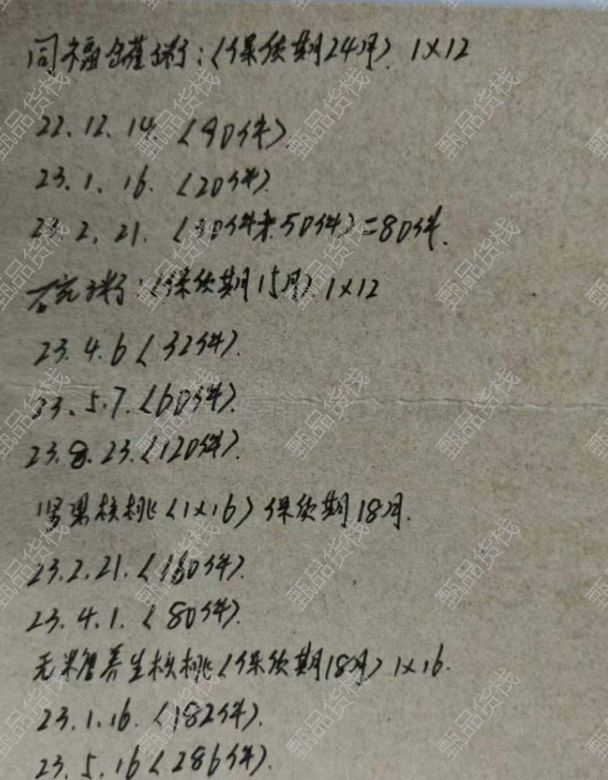 同福罐粥:(保质期24月) 1×12
22.12.14.(90件).
23.1.16.(20件).
23.2.21.(30件+50件)=80件.
粥:(保质期15月) 1×12
23.4.6(32件).
23.5.7.(60件).
23.8.23.(120件).
坚果核桃(1×16)保质期18月.
23.2.21.(160件).
23.4.1.(80件).
无米糖养生核桃(保质期18月)1×16.
23.1.16.(182件).
23.5.16(286件).
甄品货栈